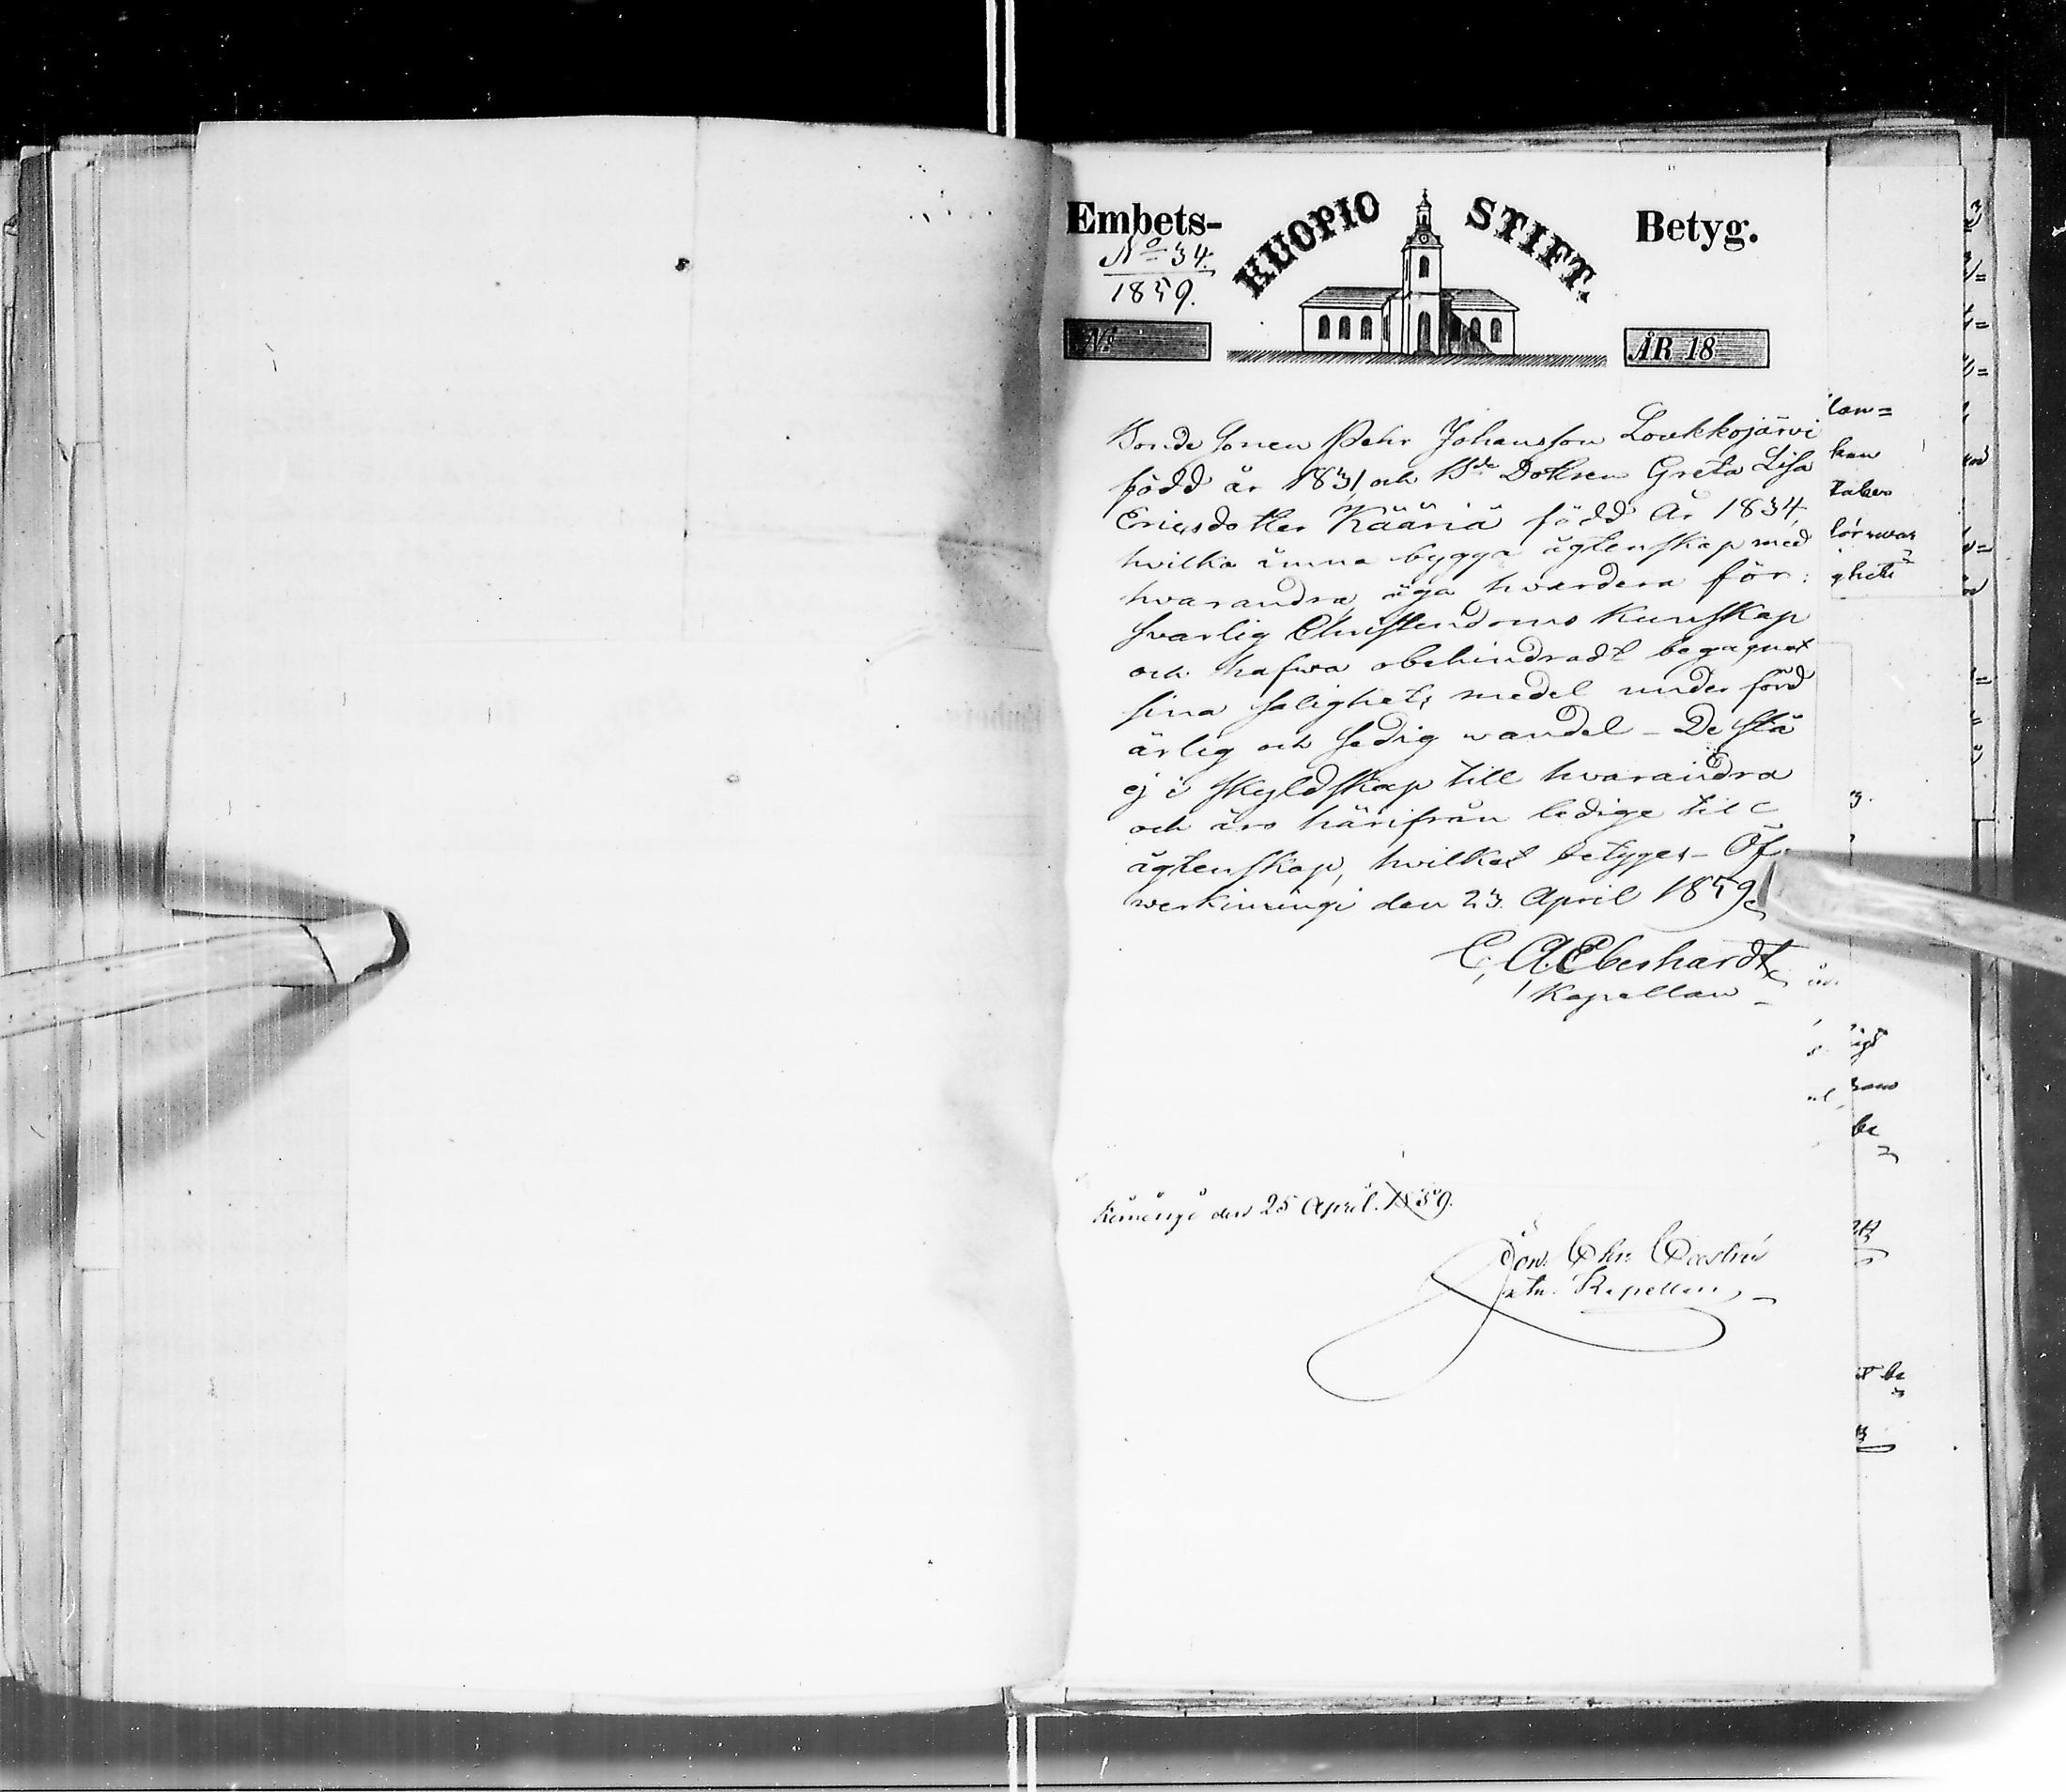 Embets- KUOPIO STIFT. Betyg.
No 34.
1859.
No
ÅR 18
Bonde Sonen Pehr Johansson Loukkojärvi
född år 1831 och Bde Dottren Greta Lisa
Ericsdotter Kääriä född År 1834,
hvilka ämna bygga ägtenskap med
hvarandra, äga hvardera för:
svarlig Christendoms Kunskap
och hafwa obehindradt begagnat
sina salighets medel under förd
ärlig och sedig wandel - De stå
ej i Skyldskap till hvarandra
och äro härifrån ledige till
ägtenskap, hvilket betyges - Öf
werkiminge den 23. April 1859.
C. A. Eberhardt
Kapellan
Kiminge den 25 April. 1859.
Jon. Chr.
Kapellan